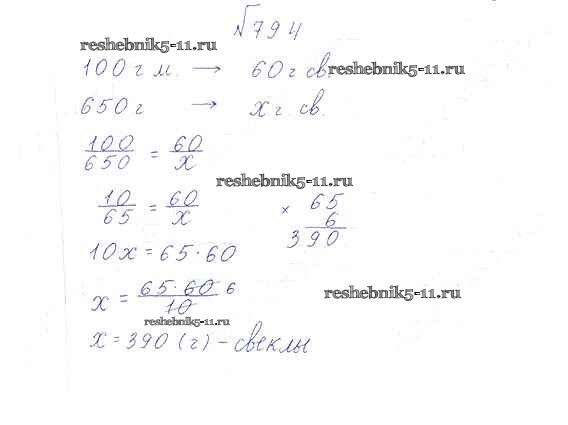 №794
reshebnik5-11.ru
100 г м. → 60 г св. reshebnik5-11.ru
650 г → x г. св.
100/650 = 60/x
reshebnik5-11.ru
10/65 = 60/x
× 65
6
390
10x = 65·60
x = 65·60 6/10
reshebnik5-11.ru
reshebnik5-11.ru
x = 390 (г) – свеклы